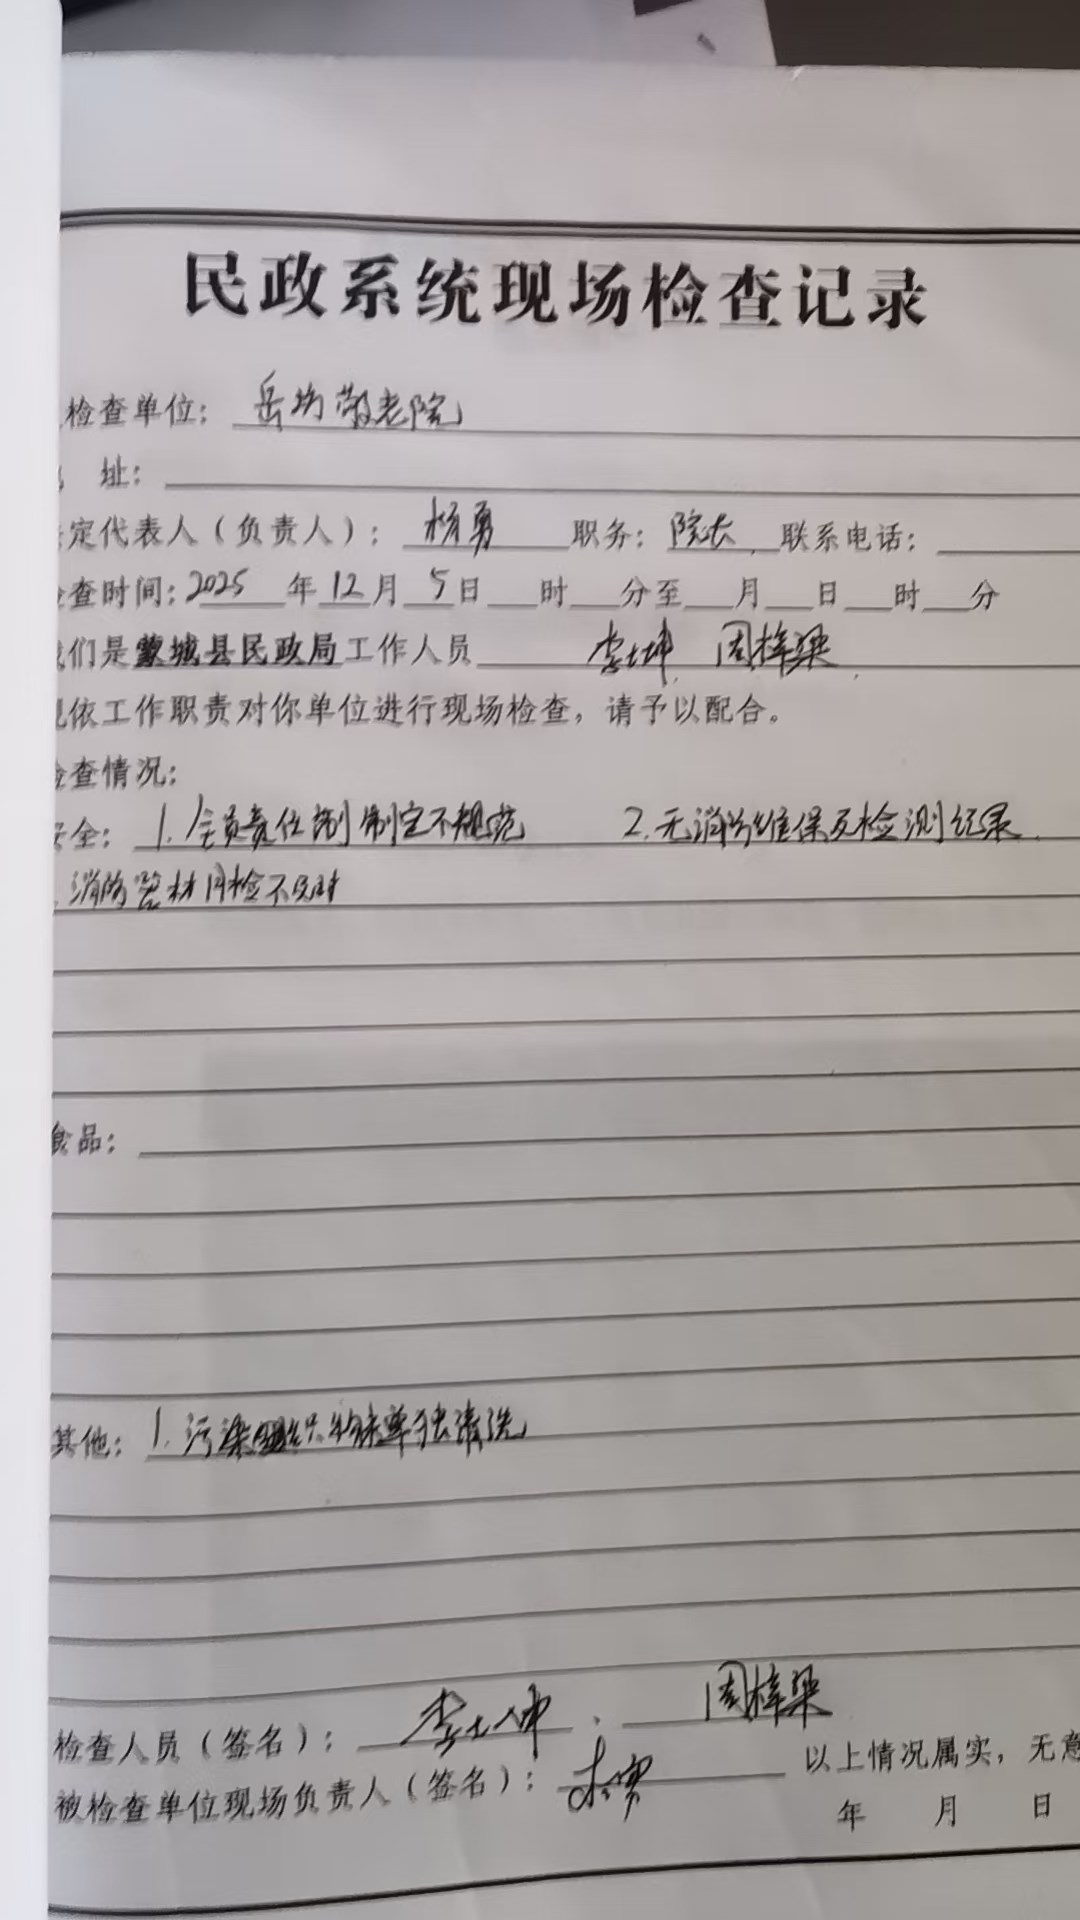 民政系统现场检查记录
检查单位: 岳坊敬老院
址:
定代表人(负责人): 杨勇 职务: 院长 联系电话:
查时间: 2025年12月5日 时 分至 月 日 时 分
们是蒙城县民政局工作人员 李士坤 周梓梁
依工作职责对你单位进行现场检查, 请予以配合。
查情况:
全: 1. 全员责任制制定不规范 2. 无消防维保及检测纪录
消防器材月检不及时
食品:
其他: 1. 污染织物未单独清洗
检查人员(签名): 李士坤、周梓梁
被检查单位现场负责人(签名): 杨勇 以上情况属实, 无意
年 月 日